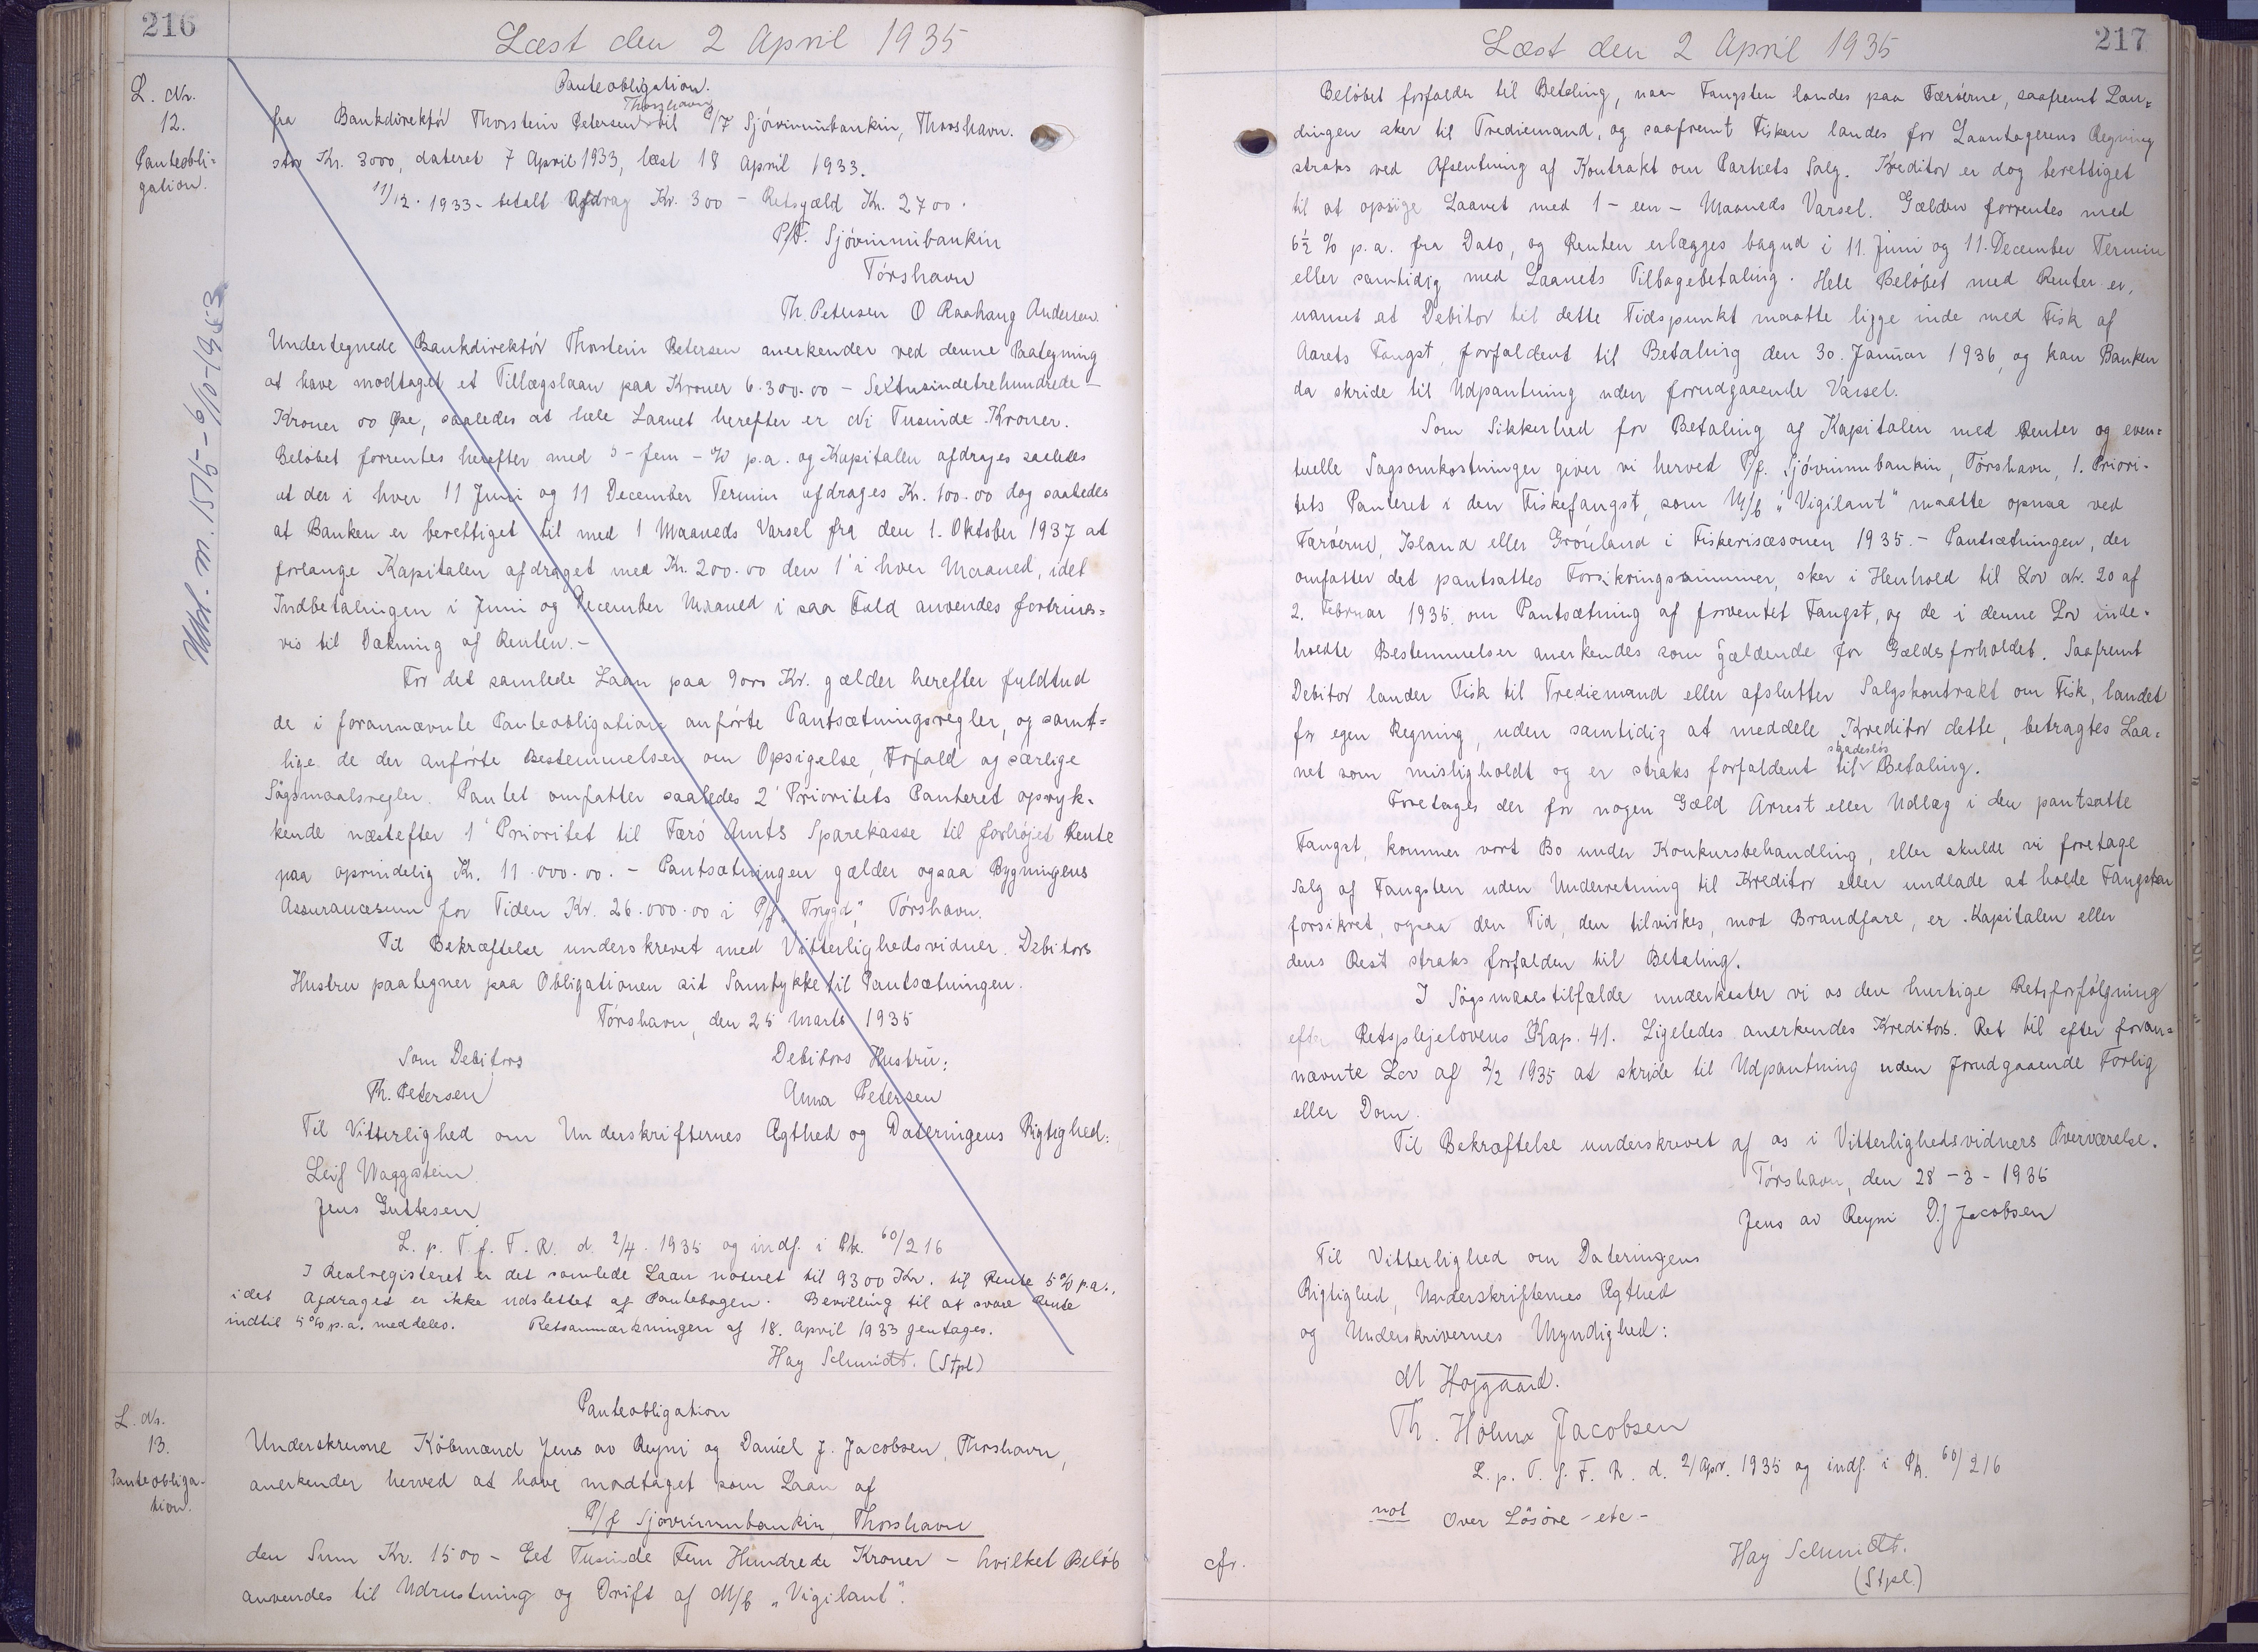 216
Læst den 2 April 1935
L. Nr.
12.
Panteobli-
gation.
Udsl. m. 1515 - 6/10-1953
Panteobligation.
Thorshavn
fra Bankdirektør Thorstein Petersen til P/F Sjóvinnubankin, Thorshavn.
stor Kr. 3000, dateret 7 April 1933, læst 18 April 1933.
11/12. 1933 - betalt Afdrag Kr. 300 - Restgæld Kr. 2700.
P/F. Sjóvinnubankin
Tórshavn
Th. Petersen O Raahang Andersen.
Undertegnede Bankdirektør Thorstein Petersen anerkender ved denne Paategning
at have modtaget et Tillægslaan paa Kroner 6.300.00 - Sextusindetrehundrede -
Kroner 00 Øre, saaledes at hele Laanet herefter er Ni Tusinde Kroner.
Beløbet forrentes herefter med 5 - fem - % p.a. og Kapitalen afdrages saaledes
at der i hver 11 Juni og 11 December Termin afdrages Kr. 100.00 dog saaledes
at Banken er berettiget til med 1 Maaneds Varsel fra den 1. Oktober 1937 at
forlange Kapitalen afdraget med Kr. 200.00 den 1' i hver Maaned, idet
Indbetalingen i Juni og December Maaned i saa Fald anvendes fortrins-
vis til Dækning af Renten. -
For det samlede Laan paa 9000 Kr. gælder herefter fuldtud
de i forannævnte Panteobligation anførte Pantsætningsregler, og samt-
lige de der anførte Bestemmelser om Opsigelse, Forfald og særlige
Søgsmaalsregler. Pantet omfatter saaledes 2' Prioritets Panteret opryk-
kende næstefter 1' Prioritet til Færø Amts Sparekasse til forhøjet Rente
paa oprindelig Kr. 11.000.00. - Pantsætningen gælder ogsaa Bygningens
Assurancesum for Tiden Kr. 26.000.00 i P/f "Trygd", Tórshavn.
Til Bekræftelse underskrevet med Vitterlighedsvidner. Debitors
Hustru paategner paa Obligationen sit Samtykke til Pantsætningen.
Tórshavn, den 25 Marts 1935
Som Debitors Debitors Hustru:
Th. Petersen Anna Petersen
Til Vitterlighed om Underskrifternes Ægthed og Dateringens Rigtighed:
Leif Waagstein
Jens Guttesen
L. p. T. f. F. R. d. 2/4. 1935 og indf. i Pk. 60/216
I Realregisteret er det samlede Laan noteret til 9300 Kr. til Rente 5% p.a.,
idet Afdraget er ikke udslettet af Pantebogen. Bevilling til at svare Rente
indtil 5% p.a. meddeles. Retsanmærkningen af 18. April 1933 gentages.
Hay Schmidt. (Stpl)
L. Nr.
13.
Panteobliga-
tion.
Panteobligation
Underskrevne Købmænd Jens av Reyni og Daniel J. Jacobsen, Thorshavn,
anerkender herved at have modtaget som Laan af
P/f Sjóvinnubankin, Thorshavn
den Sum Kr. 1500 - Eet Tusinde Fem Hundrede Kroner - hvilket Beløb
anvendes til Udrustning og Drift af M/b "Vigilant".
217
Læst den 2 April 1935
Beløbet forfalder til Betaling, naar Fangsten landes paa Færøerne, saafremt Lan-
dingen sker til Trediemand, og saafremt Fisken landes for Laantagerens Regning
straks ved Afslutning af Kontrakt om Partiets Salg. Kreditor er dog berettiget
til at opsige Laanet med 1 - een - Maaneds Varsel. Gælden forrentes med
6½ % p.a. fra Dato, og Renten erlægges bagud i 11. Juni og 11. December Termin
eller samtidig med Laanets Tilbagebetaling. Hele Beløbet med Renter er,
uanset at Debitor til dette Tidspunkt maatte ligge inde med Fisk af
Aarets Fangst, forfaldent til Betaling den 30. Januar 1936, og kan Banken
da skride til Udpantning uden forudgaaende Varsel.
Som Sikkerhed for Betaling af Kapitalen med Renter og even-
tuelle Sagsomkostninger giver vi herved P/f. Sjóvinnubankin, Tórshavn, 1. Priori-
tets Panteret i den Fiskefangst, som M/b "Vigilant" maatte opnaa ved
Færøerne, Island eller Grønland i Fiskerisæsonen 1935. - Pantsætningen, der
omfatter det pantsattes Forsikringssummer, sker i Henhold til Lov Nr. 20 af
2. Februar 1935. om Pantsætning af forventet Fangst, og de i denne Lov inde-
holdte Bestemmelser anerkendes som gældende for Gældsforholdet. Saafremt
Debitor lander Fisk til Trediemand eller afslutter Salgskontrakt om Fisk, landet
for egen Regning, uden samtidig at meddele Kreditor dette, betragtes Laa-
skadesløs
net som misligholdt og er straks forfaldent til Betaling.
Foretages der for nogen Gæld Arrest eller Udlæg i den pantsatte
Fangst, kommer vort Bo under Konkursbehandling, eller skulde vi foretage
Salg af Fangsten uden Underretning til Kreditor eller undlade at holde Fangsten
forsikret, ogsaa den Tid, den tilvirkes, mod Brandfare, er Kapitalen eller
dens Rest straks forfalden til Betaling.
I Søgsmaalstilfælde underkaster vi os den hurtige Retsforfølgning
efter Retsplejelovens Kap. 41. Ligeledes anerkendes Kreditors Ret til efter foran-
nævnte Lov af 2/2 1935 at skride til Udpantning uden forudgaaende Forlig
eller Dom.
Til Bekræftelse underskrevet af os i Vitterlighedsvidners Overværelse.
Tórshavn, den 28 - 3 - 1935
Jens av Reyni D.J Jacobsen
Til Vitterlighed om Dateringens
Rigtighed, Underskrifternes Ægthed
og Underskrivernes Myndighed:
M Højgaard.
Th. Holma Jacobsen
L. p. T. f. F. R. d. 2/Apr. 1935 og indf. i Pk. 60/216
not Over Løsøre - etc -
Hay Schmidt.
(Stpl.)
cfr.